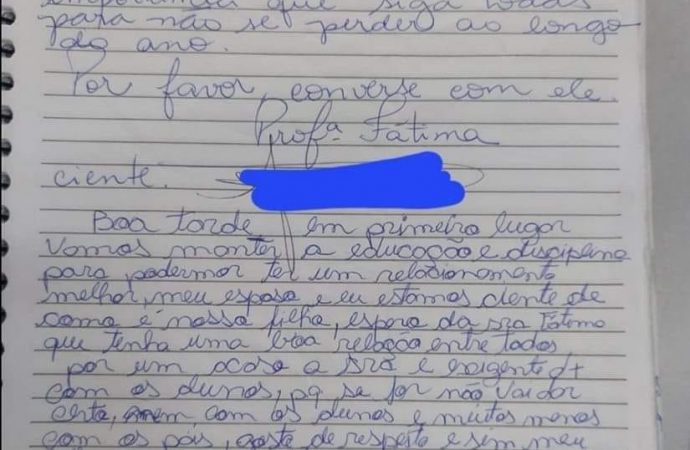 importância que siga todas
para não se perder ao longo
do ano.
Por favor, converse com ele.
Profª Fátima
ciente.
Boa tarde, em primeiro lugar
Vamos manter a educação e disciplina
para podermor ter um relacionamento
melhor, meu esposo e eu estamos ciente de
como é nossa filha, espero da sra Fátima
que tenha uma boa relação entre todos
por um acaso a sra é exigente d+
com os alunos, pq se for não vai dar
certo, nem com os alunos e muitos menos
com os pais, gosto de respeito e sim meu